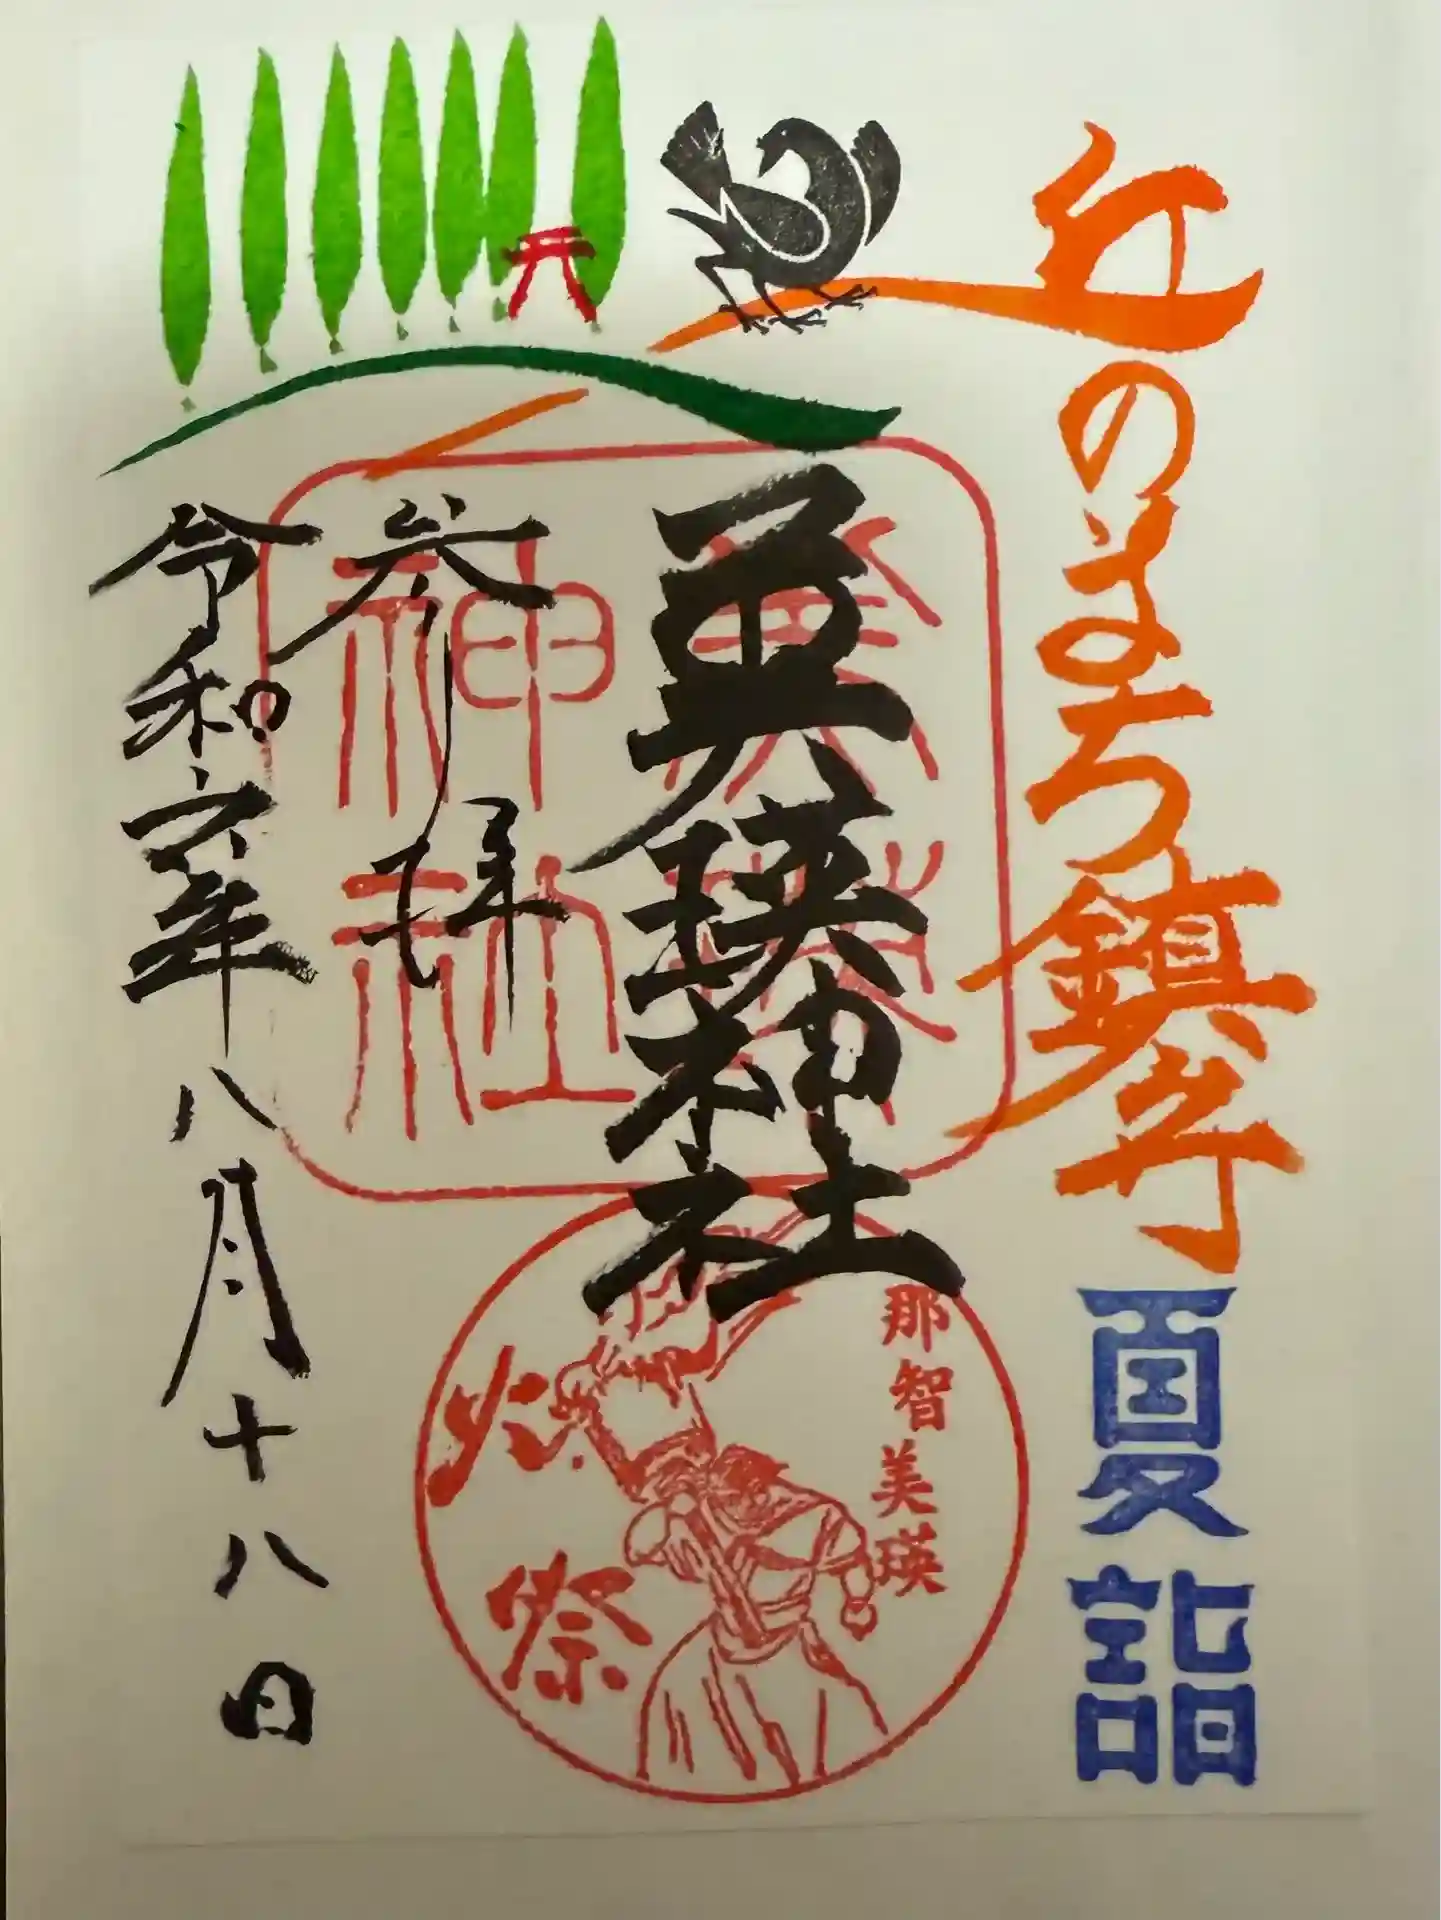 丘のまち鎮守
夏詣
美瑛神社
美瑛
神社
参拝
令和六年八月十八日
那智美瑛
火祭